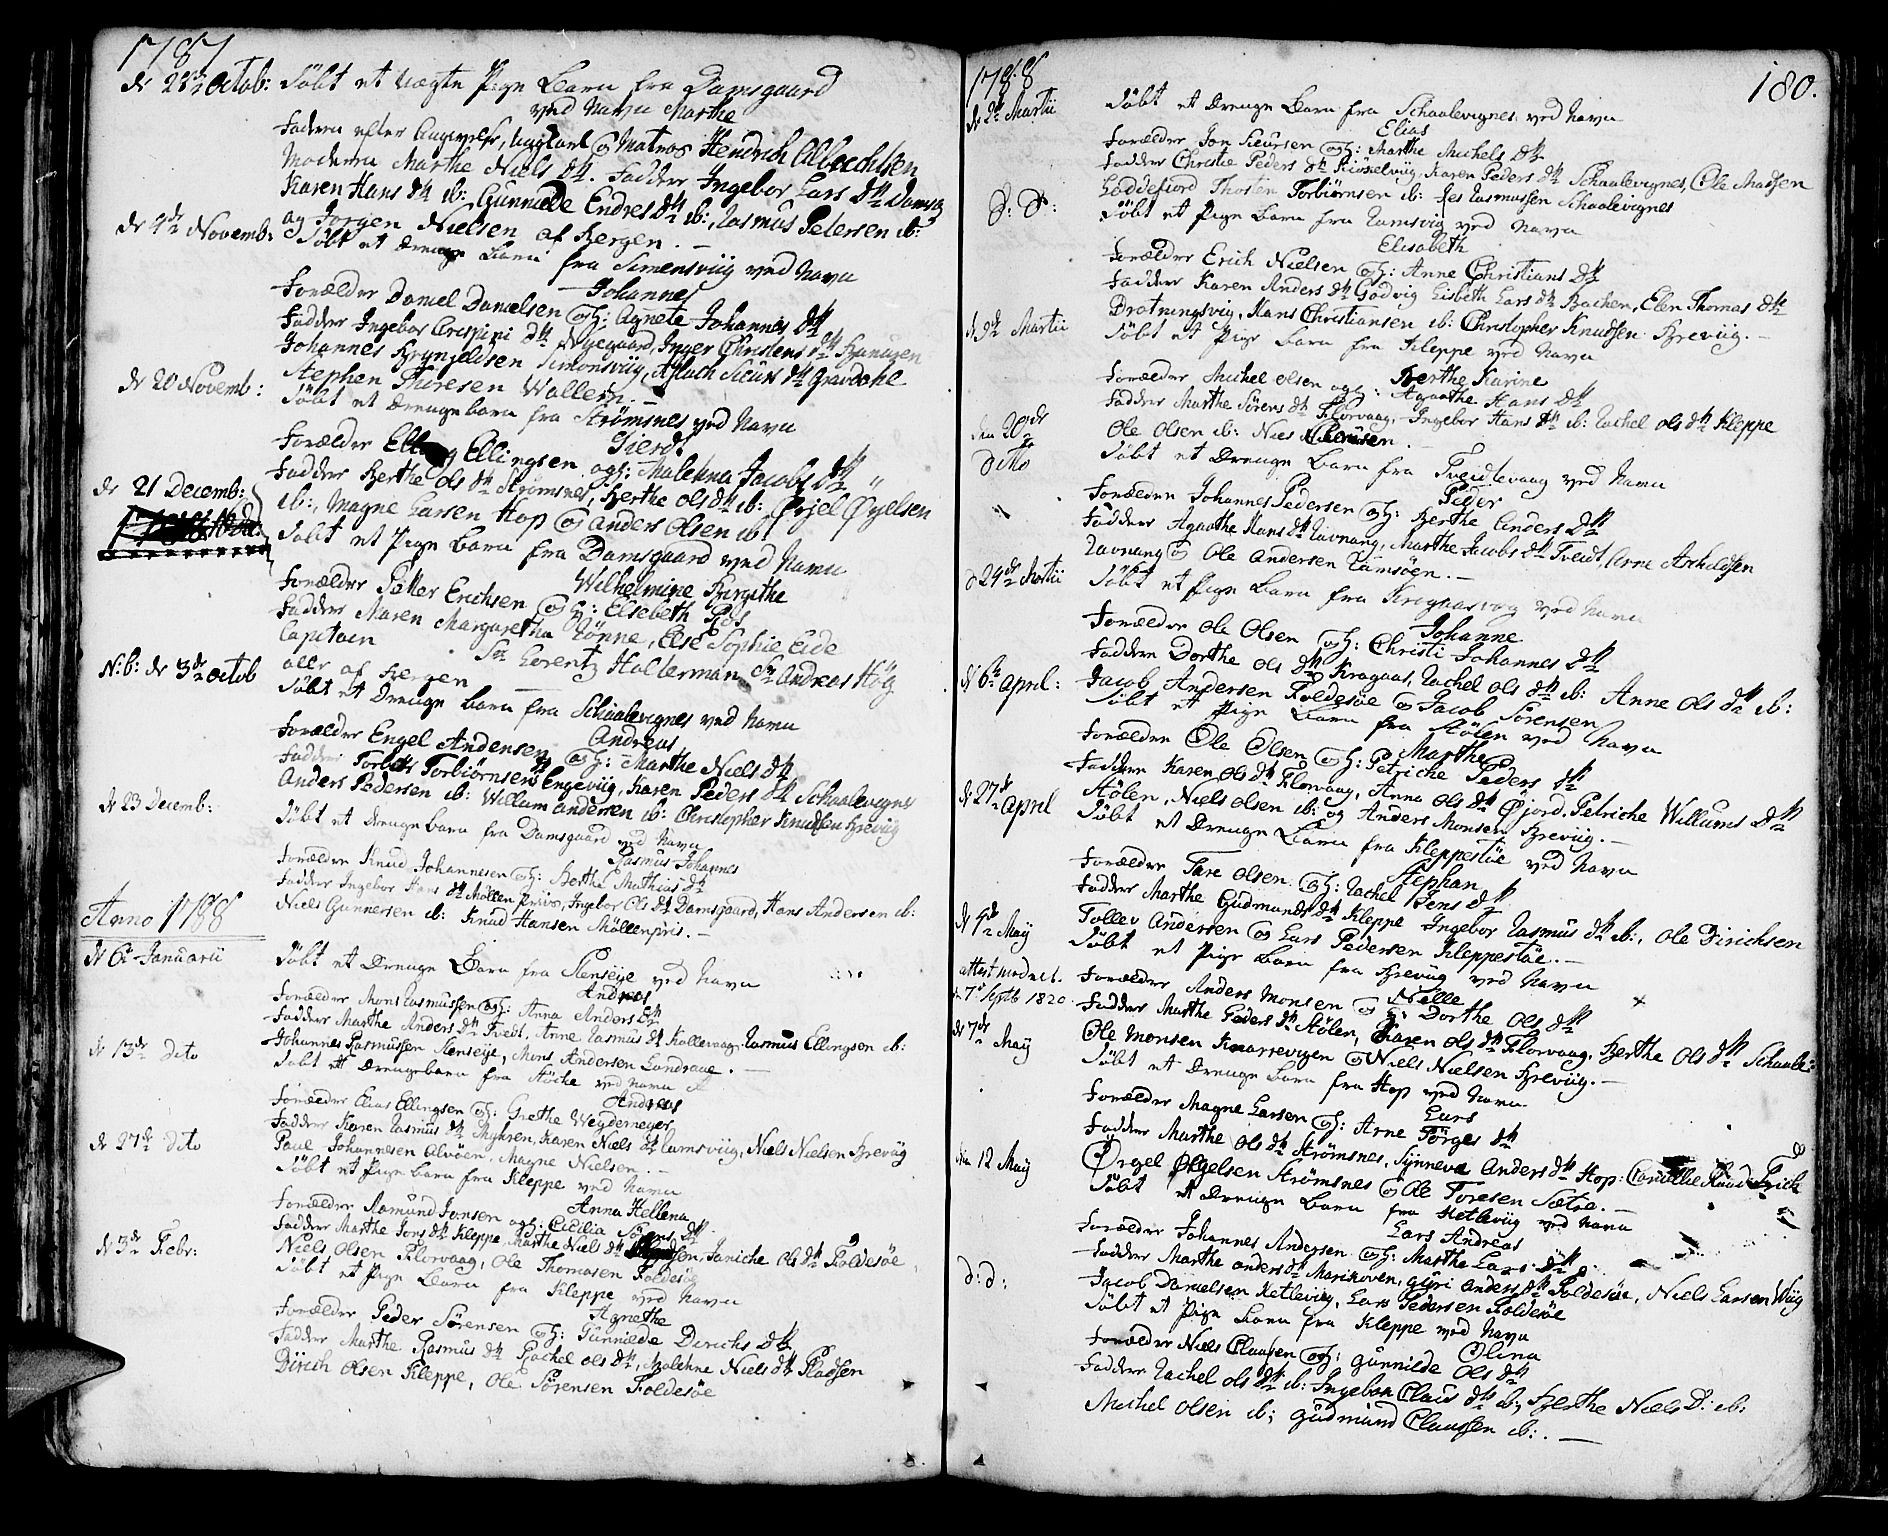 1787
d 28de Octob: Döbt et uægte Pige Barn fra Damsgaard
ved Navn Marthe
Faderen efter Angivelse, Matros Hendrich Albrechtsen
Moderen Marthe Niels dtr. Faddere Ingebor Lars dtr Damsg
Karen Hans dtr ib: Gunnilde Endres dtr ib: Rasmus Petersen ib:
og Jørgen Nielsen af Bergen. —
d 4de Novemb: Döbt et Drenge Barn fra Simensviig ved Navn
Johannes
Forældre Daniel Danielsen og H: Agnete Johannes dtr
Faddere Ingebor Crispini dtr Nyegaard, Inger Christens dtr
Johannes Brynjeldsen Simonsviig, Aslach Siurs dtr Gravdahl
Stephen Thoresen Wallem. —
d 20 Novemb: Döbt et Drengebarn fra Strømsnes ved Navn
Sierd
Forældre Elling Ellingsen og H: Malehna Jacobs dtr
Faddere Berthe Ols dtr Strømsnes, Berthe Ols dtr ib: Ørjel Ørjelsen
ib:, Magne Larsen Hop og Anders Olsen ib
d 21 Decemb: Döbt et Pige Barn fra Damsgaard ved Navn
Wilhelmine Birgithe
Forældre Petter Erichsen og H: Elsebeth Ros
Faddere Maren Margaretha Rönne, Else Sophie Eide
Capitain Sr Lorentz Holterman Sr Andreas Holtz
alle af Bergen
N:b: d 3de Octob Döbt et Drenge Barn fra Schaalevignes ved Navn
Andreas
Forældre Engel Andersen og H: Marthe Niels dtr
Faddere Torbiørnsen Engeviig, Karen Peders dtr Schaalevignes
Anders Pedersen ib: Willum Andersen ib: Christopher Knudsen Breviig
d 23 Decemb: Döbt et Drenge Barn fra Damsgaard ved Navn
Rasmus Johannes
Forældre Knud Johannesen og H: Berthe Mathias dtr
Faddere Ingebor Hans dtr Möllenpriis, Ingebor Ols dtr Damsgaard, Hans Andersen ib:
Niels Gunnersen ib: Knud Hansen Möllenpris. —
Anno 1788
d 6te Januarii Döbt et Drenge Barn fra Stenseÿe ved Navn
Andreas
Forældre Mons Rasmussen og H: Anna Anders dtr
Faddere Marthe Anders dtr Tvedt, Anne Rasmus dtr Kollevaag, Rasmus Ellingsen ib:
Johannes Rasmussen Stenseÿe, Mons Andersen Landraae. —
d 13de dito Döbt et Drengebarn fra Støche ved Navn
Andreas
Forældre Elias Ellingsen og H: Grethe Weydemeyer
Faddere Karen Rasmus dtr Myhren, Karen Niels dtr Ramsviig, Niels Nielsen Breviig
Paul Johannesen Alvøen, Magne Nielsen. —
d 27de dito Döbt et Pige Barn fra Kleppe ved Navn
Anna Hellena
Forældre Aamund Jonsen og H: Cicilia Sörens dtr
Faddere Marthe Jons dtr Kleppe, Marthe Niels dtr Janiche Ols dtr Foldesøe
Niels Olsen Florvaag, Ole Thomasen Foldesøe
d 3de Febr: Döbt et Pige Barn fra Kleppe ved Navn
Agnethe
Forældre Peder Sörensen og H: Gunnilde Dirichs dtr
Faddere Marthe Rasmus dtr Rachel Ols dtr, Malehne Niels dtr Pladsen
Dirich Olsen Kleppe, Ole Sörensen Foldesøe
1788
180.
d 2de Martii Döbt et Drenge Barn fra Schaalevignes ved Navn
Elias
Forældre Jon Siursen og H: Marthe Michels dtr
Faddere Christie Peders dtr Karen Peders dtr Schaalevignes, Ole Madsen
Loddefiord Thosten Torbiørnsen ib: Jes Rasmussen Schaalevignes
D: D: Döbt et Pige Barn fra Ramsvig ved Navn
Elisabeth
Forældre Erich Nielsen og H: Anne Christians dtr
Faddere Karen Anders dtr Godvig Lisbeth Lars dtr Bachen, Elen Thomas dtr
Drotningsvig, Hans Christiansen ib: Christopher Knudsen Breviig. —
d 9de Martii Döbt et Pige Barn fra Kleppe ved Navn
Berthe Karine
Forældre Michel Olsen og H: Agaathe Hans dtr
Faddere Marthe Sörens dtr Florvaag, Ingebor Hans dtr ib: Rachel Ols dtr Kleppe
Ole Olsen ib: Niels Clausen.
den 20de dito Döbt et Drenge Barn fra Tveidtevaag ved Navn
Peder
Forældre Johannes Pedersen og H: Berthe Anders dtr
Faddere Agaathe Hans dtr Ravnang, Marthe Jacobs dtr Tveidt, Arne Arhildsen
Ravnang og Ole Andersen Ramsøen. —
d 24de Martii Döbt et Pige Barn fra ved Navn
Johanne
Forældre Ole Olsen og H: Christi Johannes dtr
Faddere Dorthe Ols dtr Kragaas, Rachel Ols dtr ib: Anne Ols dtr ib:
Jacob Andersen Foldesøe og Jacob Sörensen
d 6te April: Döbt et Pige Barn fra Stölen ved Navn
Marthe
Forældre Ole Olsen og H: Petriche Peders dtr
Faddere Karen Ols dtr Florvaag, Anna Ols dtr Øjord, Petriche Willums dtr
Stölen, Niels Olsen ib: og Anders Monsen Breviig. —
d 27de April Döbt et Drenge Barn fra Kleppestöe ved Navn
Stephan
Forældre Tare Olsen og H: Rachel Jens dtr
Faddere Marthe Gudmunds dtr Kleppe Ingebor Rasmus dtr ib:, Ole Dirichsen
Tollev Andersen og Lars Pedersen Kleppestöe. —
d 4de Maÿ Döbt et Pige Barn fra Breviig ved Navn
Nille
attest meddelt Forældre Anders Monsen og H: Dorthe Ols dtr
d 7de Septb 1820. Faddere Marthe Peders dtr Stölen, Karen Ols dtr Florvaag, Berthe Ols dtr Schaale:
Ole Monsen Knarrevigen og Niels Nielsen Breviig. —
d 7de Maÿ Döbt et Drenge Barn fra Hop ved Navn
Lars
Forældre Magne Larsen og H: Arne Törges dtr
Faddere Marthe Ols dtr Strömsnes, Synneva Anders dtr Hop:
Ørgel Ørgelsen Strömsnes og Ole Toresen Sætre. —
den 12 Maÿ Döbt et Drenge Barn fra Hetleviig ved Navn
Lars Andreas
Forældre Johannes Andersen og H: Marthe Lars dtr
Faddere Marthe Anders dtr Marikoven, Guri Anders dtr Foldesøe, Niels Larsen Wiig
Jacob Danielsen Hetleviig, Lars Pedersen Foldesøe
d: d: Döbt et Pige Barn fra Kleppe ved Navn
Olina
Forældre Niels Clausen og H: Gunnilde Ols dtr
Faddere Rachel Ols dtr ib: Ingebor Claus dtr ib:, Berthe Niels D: ib:
Michel Olsen ib: Gudmund Claussen ib:. —